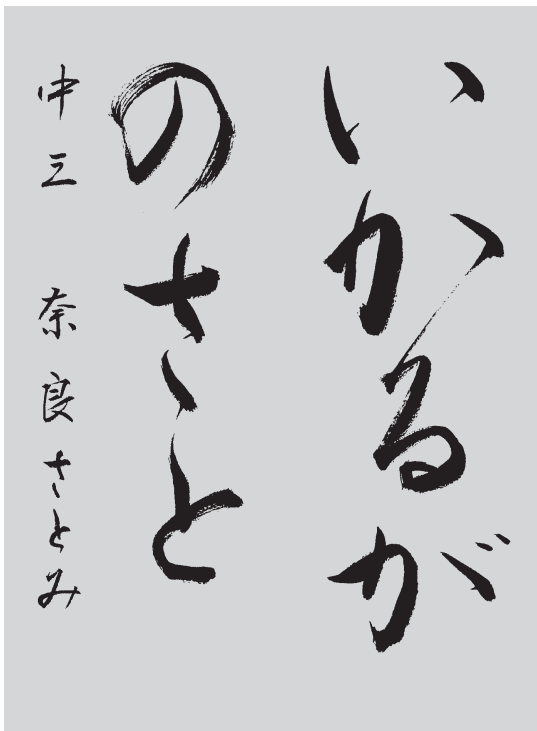 いかるが
のさと
中三 奈良さとみ